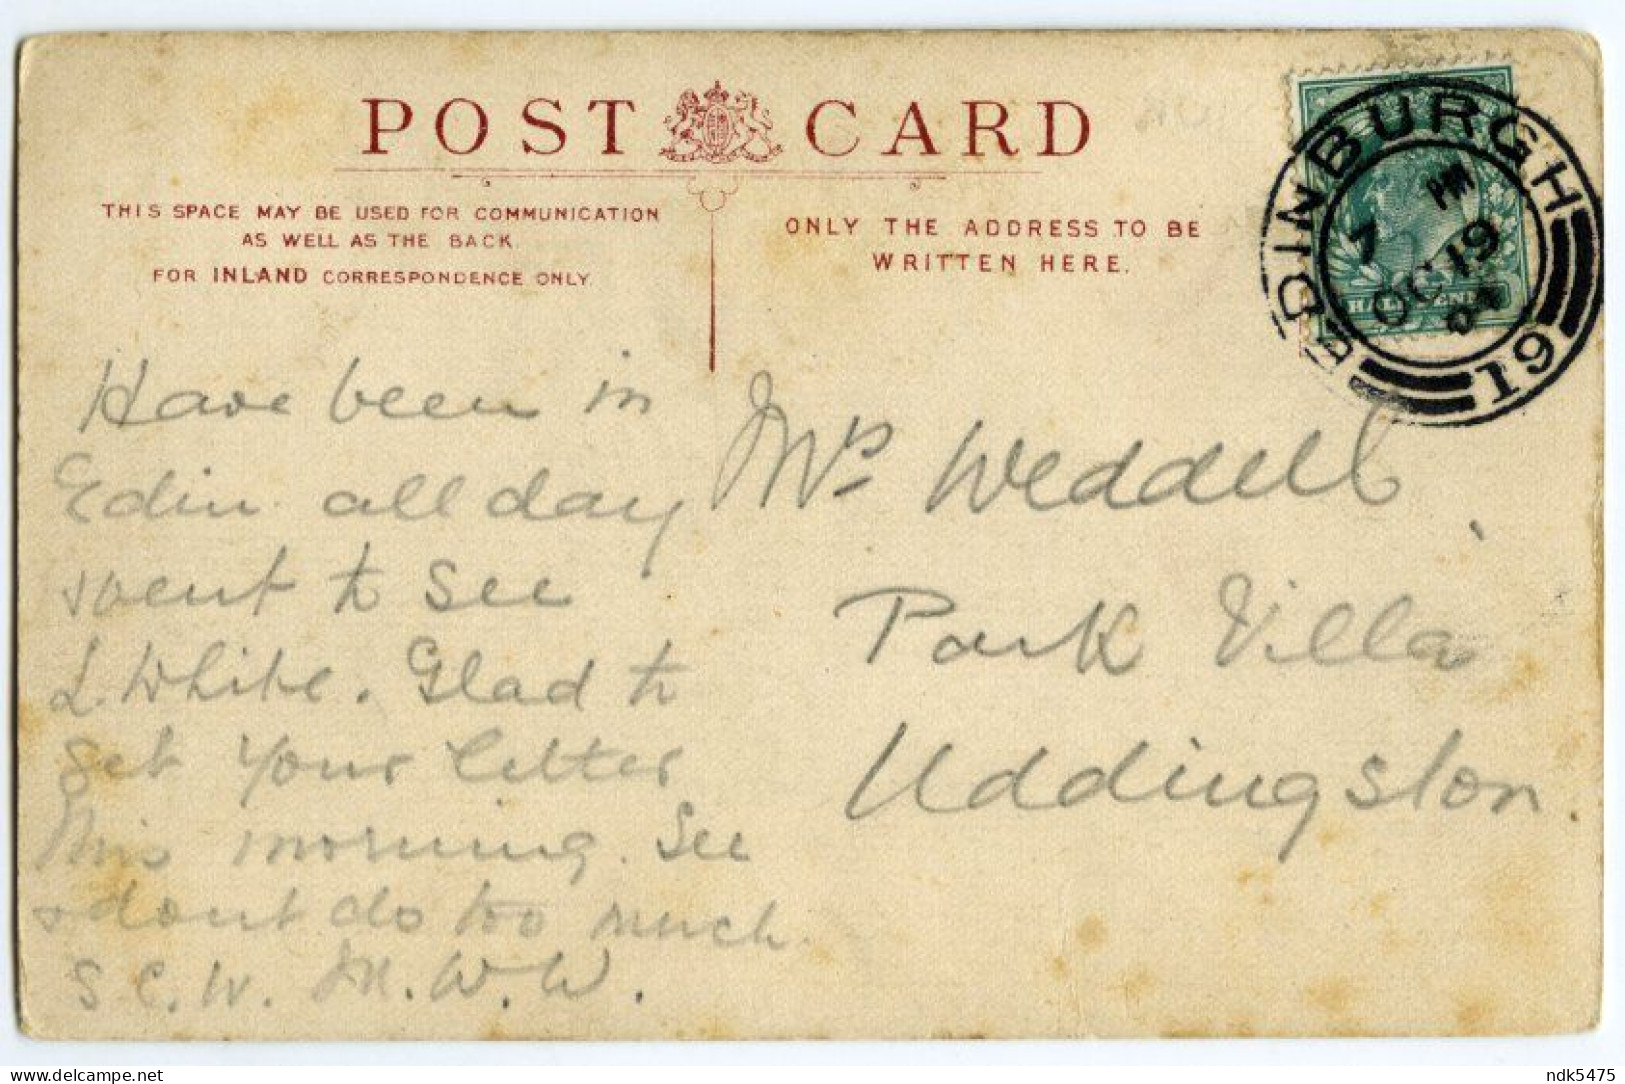 POST CARD
THIS SPACE MAY BE USED FOR COMMUNICATION
AS WELL AS THE BACK.
FOR INLAND CORRESPONDENCE ONLY
ONLY THE ADDRESS TO BE
WRITTEN HERE.
EDINBURGH
7 PM
OC 19
04
19
HALFPENNY
Have been in
Edin. all day
went to see
L. White. Glad to
get your letter
this morning. See
& dont do too much.
S C. W. M. W. W.
Mrs Weddell
Park Villa
Uddingston.
delcampe.net
ndk5475